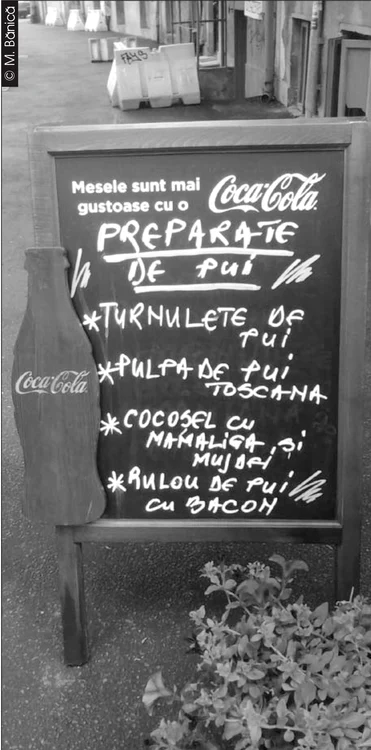 © M. Bănică
Mesele sunt mai
gustoase cu o Coca-Cola
PREPARATE
DE PUI
*TURNULETE DE
PUI
*PULPA DE PUI
TOSCANA
Coca-Cola
*COCOSEL CU
MAMALIGA ȘI
MUJDEI
*RULOU DE PUI
CU BACON